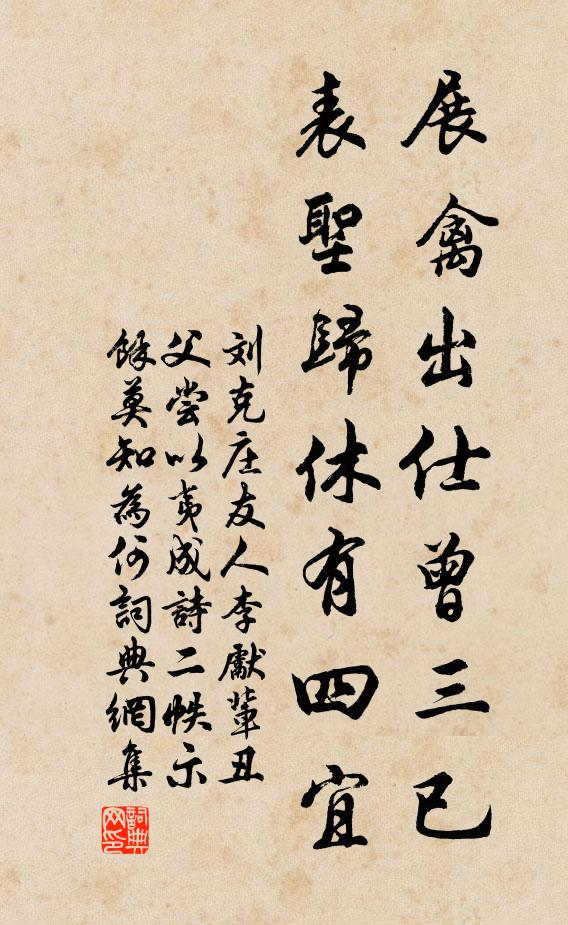 展禽出仕曾三已
表聖歸休有四宜
刘克庄友人李獻輩丑
父嘗以夷成詩二帙示
餘莫知為何詞典網集
詞典网印